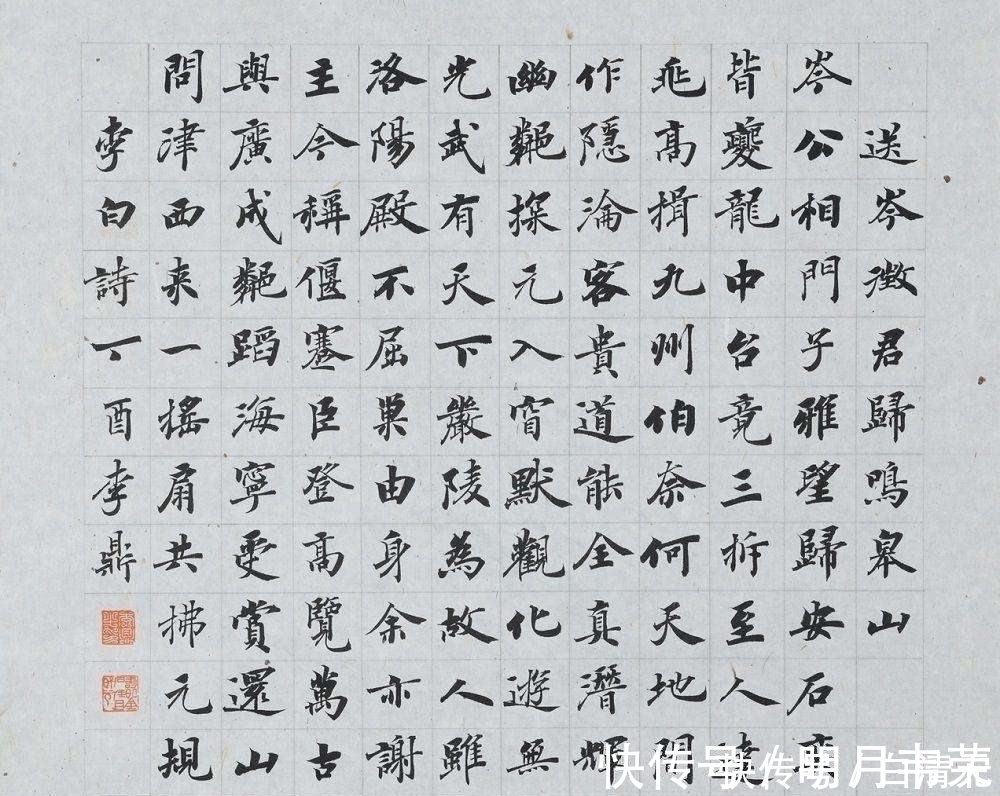 送岑徵君歸鳴皋山
岑公相門子雅望歸安石奕
皆夔龍中台竟三拆至人達
兆高揖九州伯奈何天地間
作隱淪客貴道能全真潛輝
幽鄰探元入窅默觀化遊無
光武有天下嚴陵為故人雖
洛陽殿不屈巢由身余亦謝
主今稱偃蹇臣登高覽萬古
與廣成鄰蹈海寧受賞還山
問津西来一搖扇共拂元規
李白詩丁酉李鼎
快传号